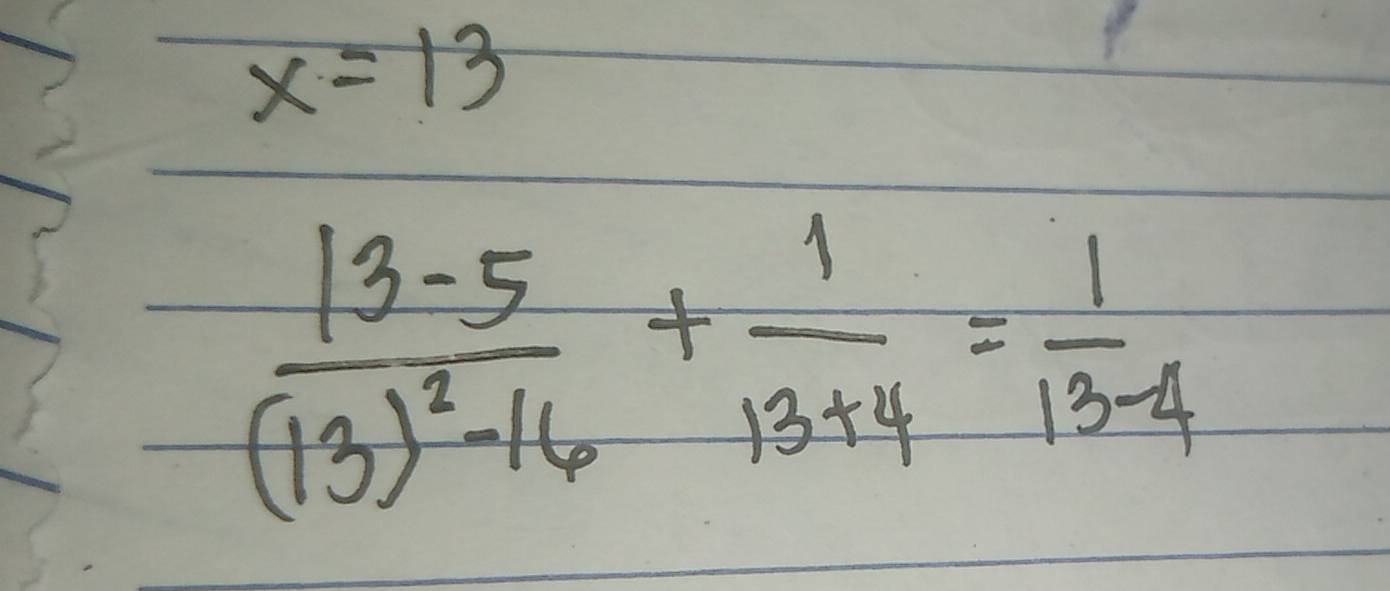 x = 13
13-5 / (13)² -16 + 1 / 13+4 = 1 / 13-4